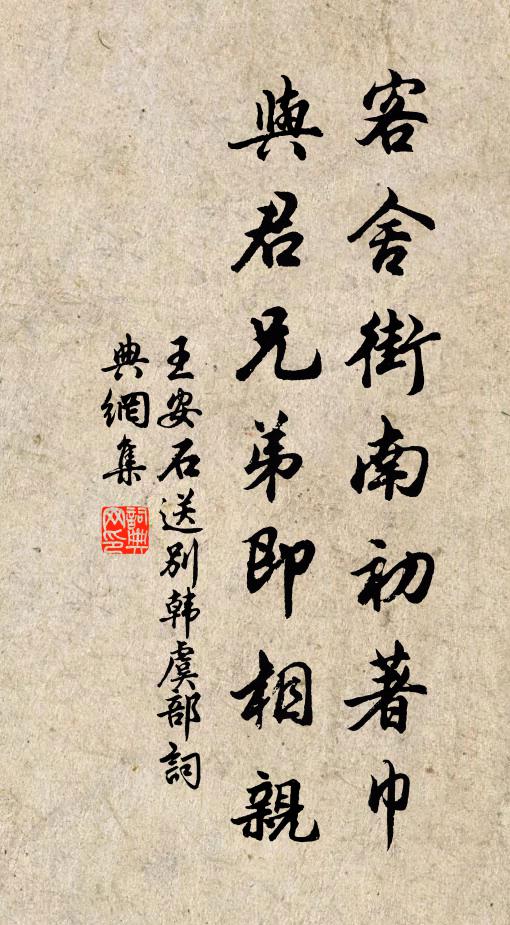 客舍街南初著巾
與君兄弟即相親
王安石送别韩虞部詞
典網集
詞典网印